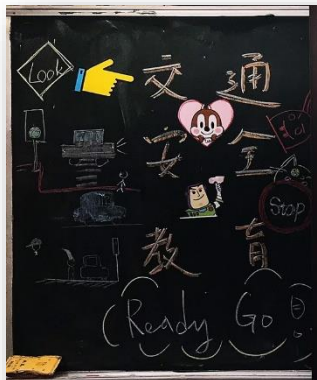 Look
交通
安全
Stop
教育
Ready Go